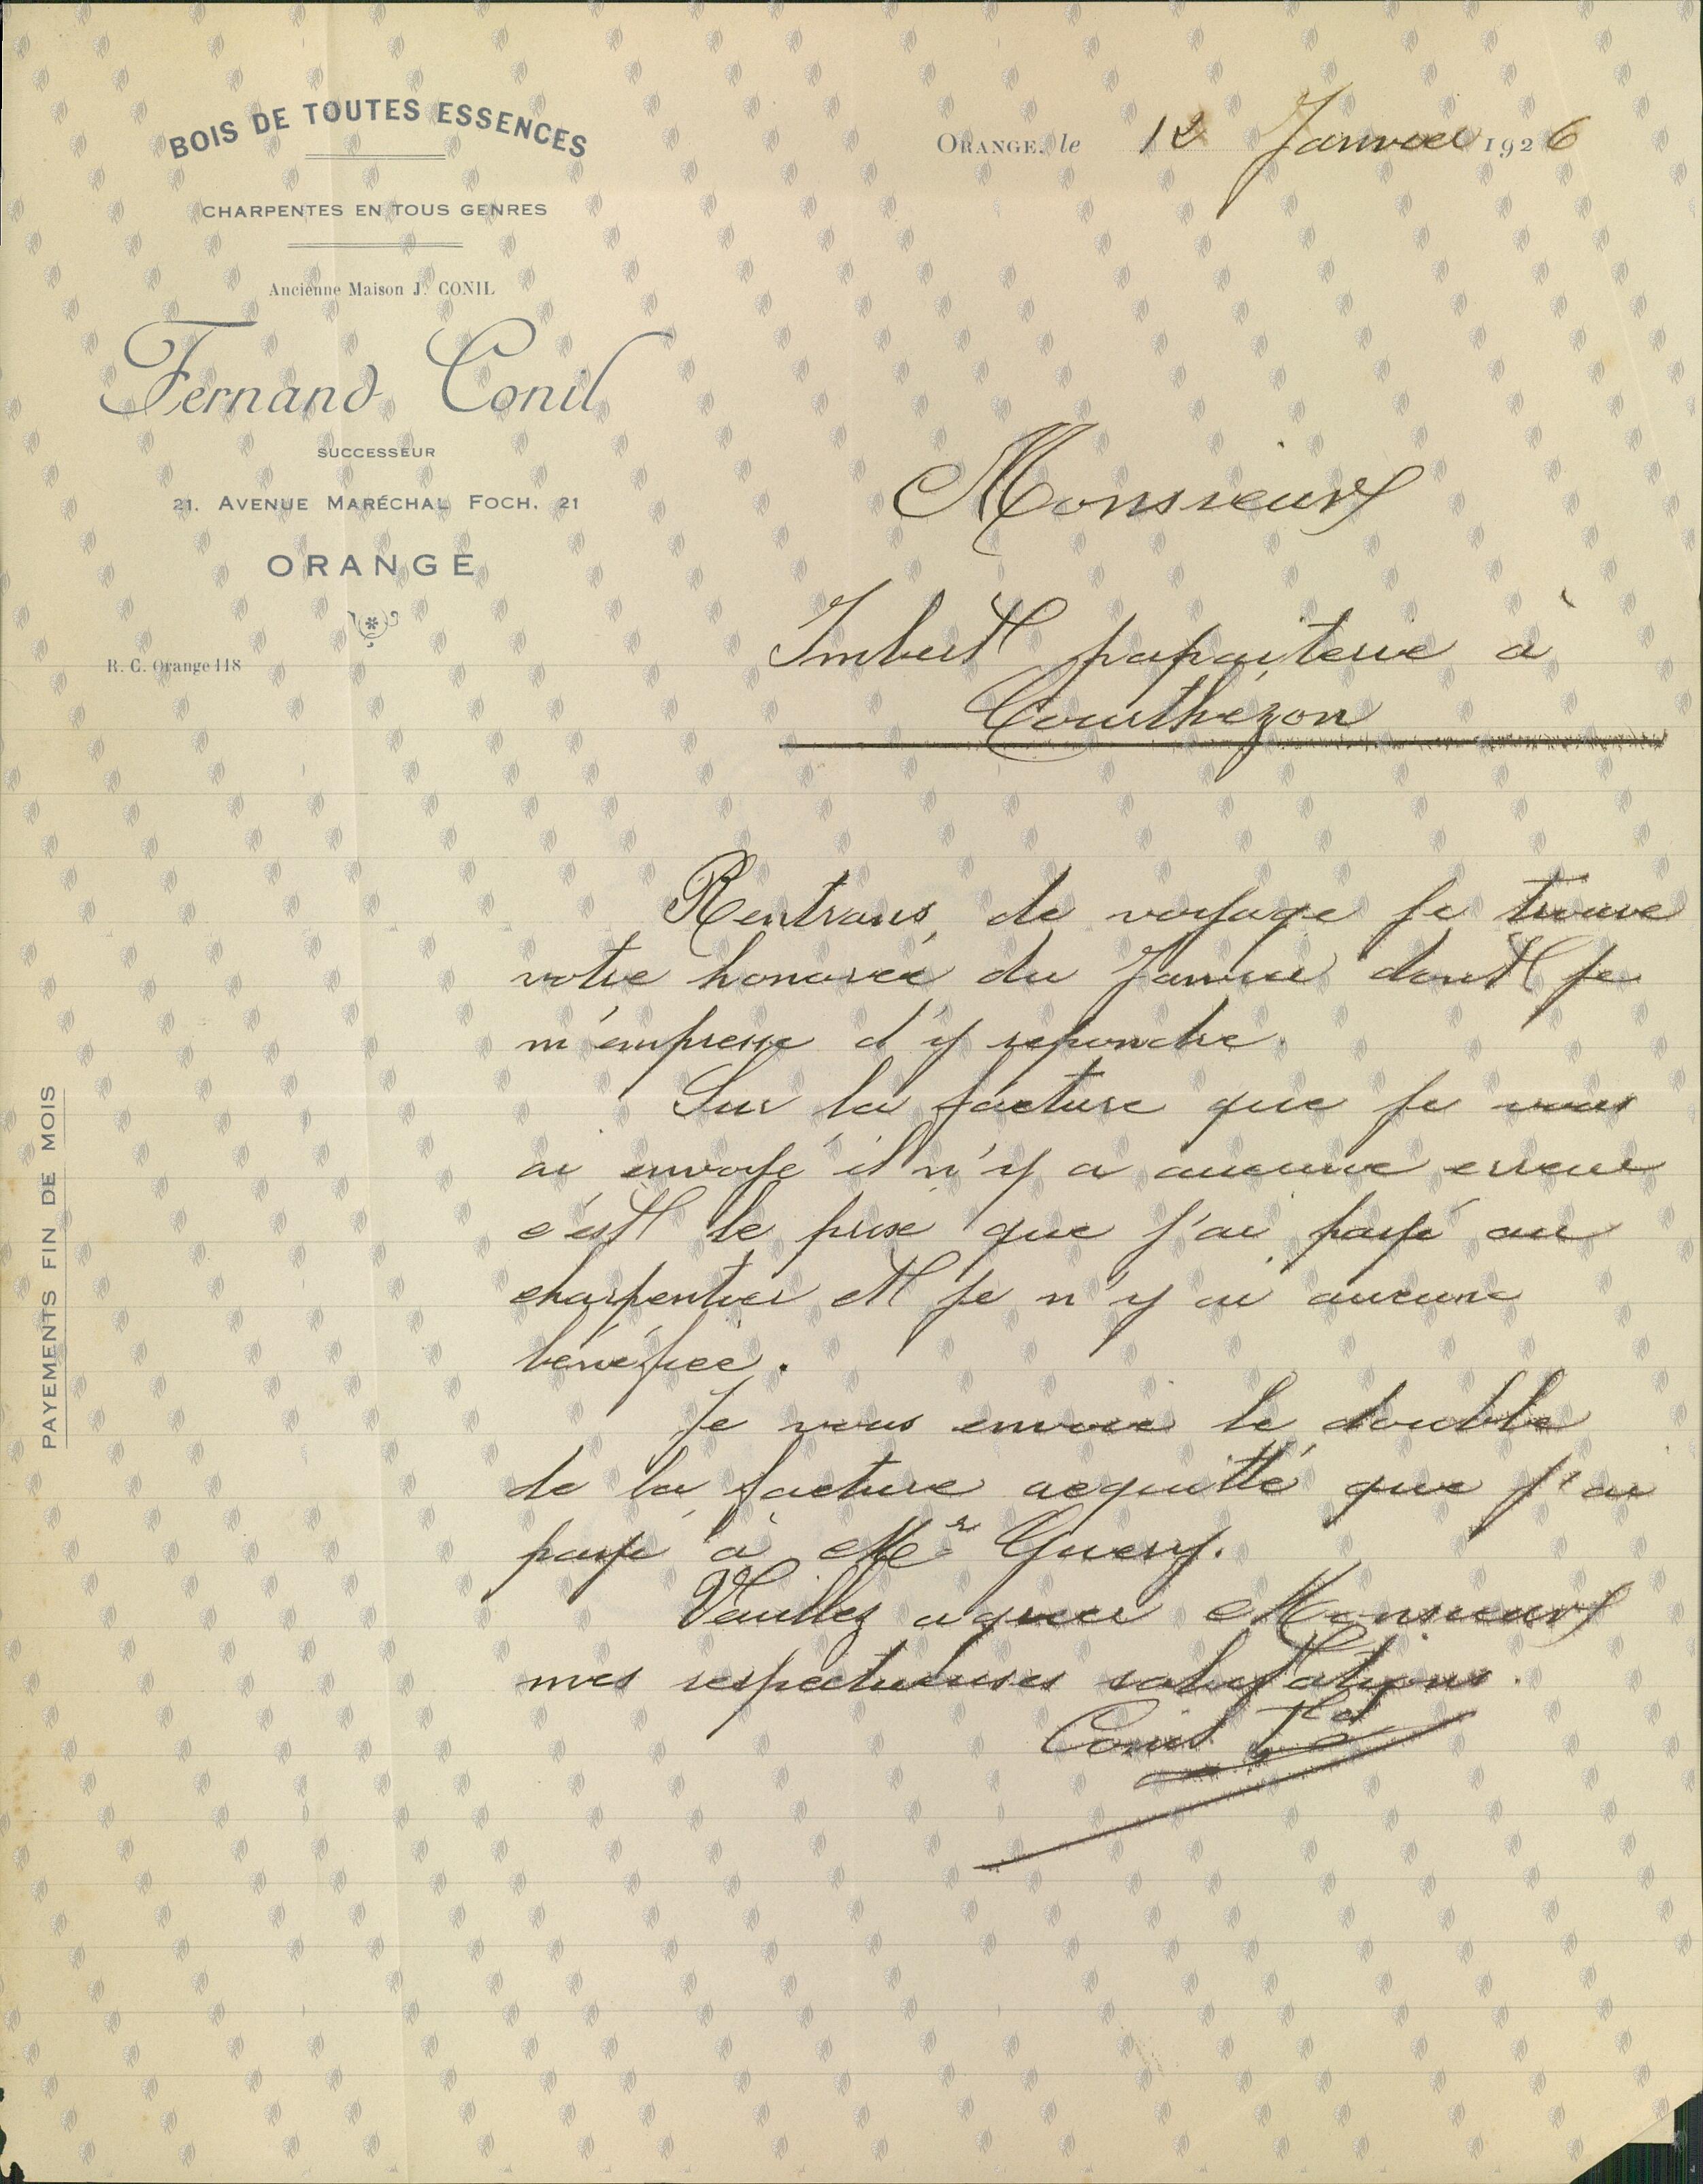 BOIS DE TOUTES ESSENCES
CHARPENTES EN TOUS GENRES
Ancienne Maison J. CONIL
Fernand Conil
SUCCESSEUR
21, AVENUE MARÉCHAL FOCH, 21
ORANGE
R. C. Orange 118
PAYEMENTS FIN DE MOIS
ORANGE, le 12 Janvier 1926
Monsieur
Imbert papeiterie à
Courthézon
Rentrans de voyage je trouve
votre honorée du Janvier dont je
m'empresse d'y repondre.
Sur la facture que je vous
ai envoyé il n'y a aucune erreur
c'est le prix que j'ai payé au
charpentier et je n'y ai aucune
bénéfice.
Je vous envoie le double
de la facture acquitté que j'ai
payé à Mr Guery.
Veuillez agreer Monsieur
mes respectueuses salutations.
Conil Fd